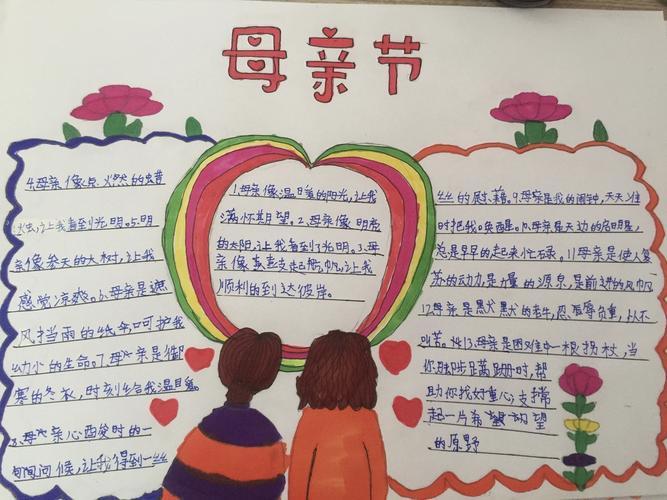 母亲节
1.母亲像温暖的阳光,让我
满怀期望。2.母亲像明亮
的太阳,让我看到了光明。3.母
亲像支起帆,让我
顺利的到达彼岸。
4.母亲像点 燃的蜡
烛,让我看到光明。5.母
亲像参天的大树,让我
感觉凉爽。6.母亲是遮
风挡雨的纸伞呵护我
幼小的生命。7.母亲是御
寒的冬衣,时刻给我温暖。
8.母亲心酸时的一
句问候,让我得到一丝
丝的慰藉。9.母亲是我的闹钟,天天准
时把我唤醒。10.母亲是天边的启明星,
总是早早的起来忙碌。11母亲是使人复
苏的动力,是力量的源泉,是前进的风帆
12母亲是默默的老牛,忍辱负重,从不
叫苦。13.母亲是困难中一根拐杖,当
你脚步蹒跚时,帮
助你找好重心,支撑
起一片希望
的原野